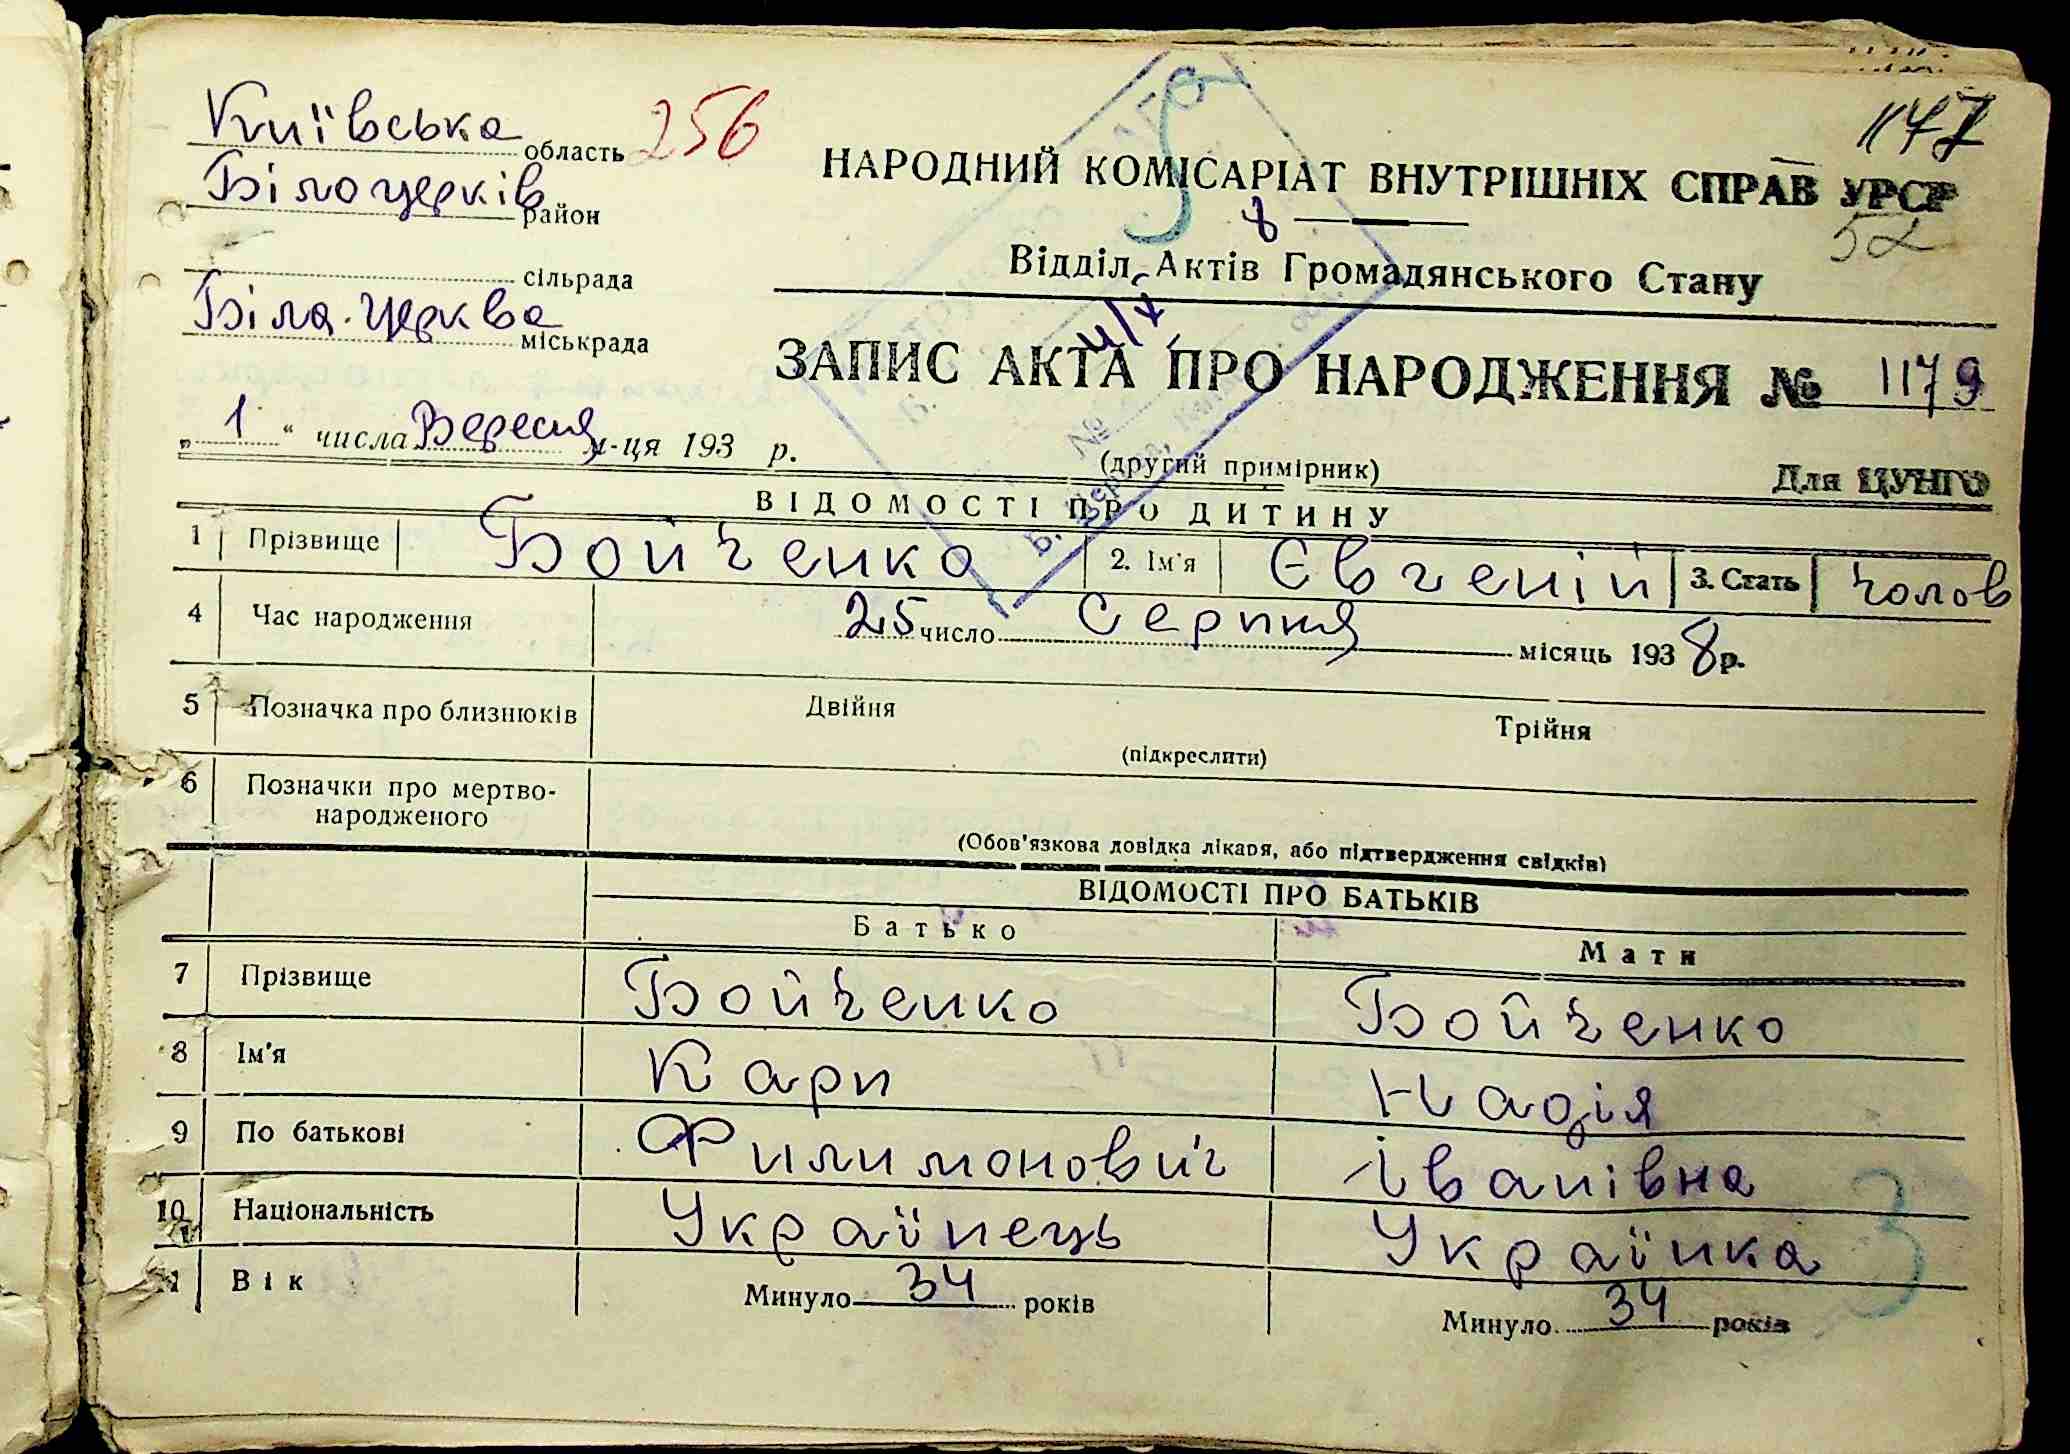 Київська область 256
Білоцерків район
сільрада
Біла-Церква міськрада
147
НАРОДНИЙ КОМІСАРІАТ ВНУТРІШНІХ СПРАВ УРСР
52
Відділ Актів Громадянського Стану
ЗАПИС АКТА ПРО НАРОДЖЕННЯ № 1179
„1“ числа Вересня м-ця 193 р.
(другий примірник) Для ЦУНГО
ВІДОМОСТІ ПРО ДИТИНУ
1 Прізвище Бойченко 2. Ім'я Євгеній 3. Стать Чолов
4 Час народження 25 число Серпня місяць 1938 р.
5 Позначка про близнюків Двійня Трійня
(підкреслити)
6 Позначки про мертво-
народженого
(Обов'язкова довідка лікаря, або підтвердження свідків)
ВІДОМОСТІ ПРО БАТЬКІВ
Батько Мати
7 Прізвище Бойченко Бойченко
8 Ім'я Карп Надія
9 По батькові Филимонович Іванівна
10 Національність Українець Українка
3
11 Вік Минуло 34 років Минуло 34 років